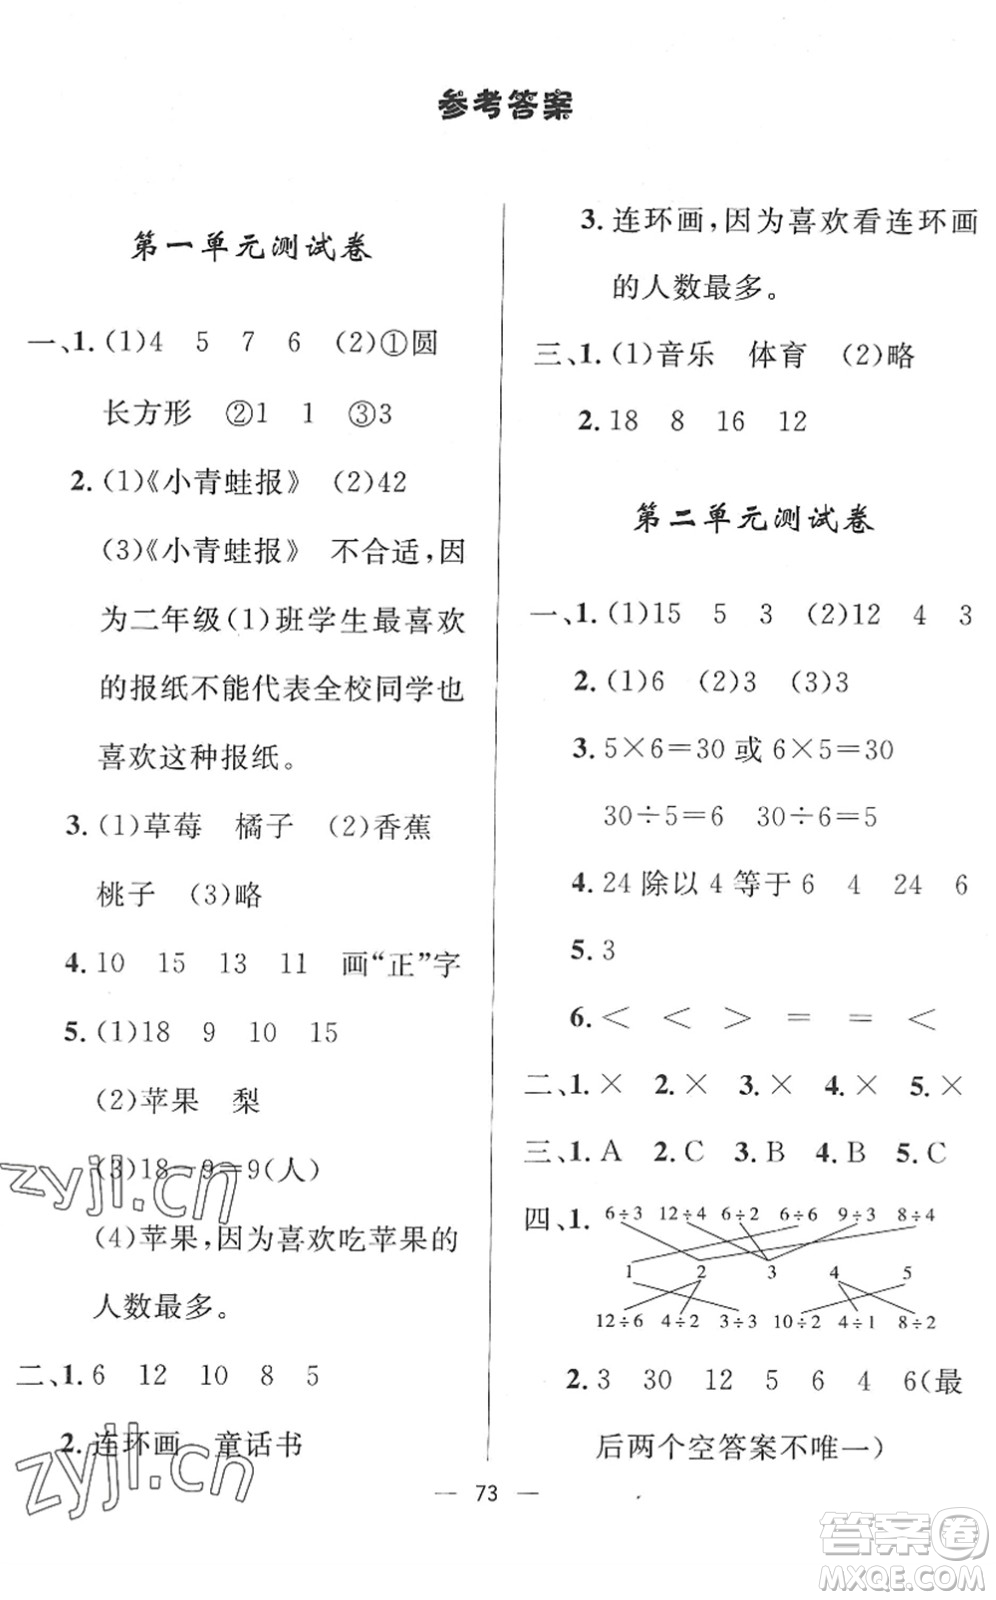 参考答案
第一单元测试卷
一、1. (1)4 5 7 6 (2)①圆
长方形 ②1 1 ③3
2. (1)《小青蛙报》 (2)42
(3)《小青蛙报》 不合适,因
为二年级(1)班学生最喜欢
的报纸不能代表全校同学也
喜欢这种报纸。
3. (1)草莓 橘子 (2)香蕉
桃子 (3)略
4. 10 15 13 11 画“正”字
5. (1)18 9 10 15
(2)苹果 梨
(3)18-9=9(人)
(4)苹果,因为喜欢吃苹果的
人数最多。
二、1. 6 12 10 8 5
2. 连环画 童话书
3. 连环画,因为喜欢看连环画
的人数最多。
三、1. (1)音乐 体育 (2)略
2. 18 8 16 12
第二单元测试卷
一、1. (1)15 5 3 (2)12 4 3
2. (1)6 (2)3 (3)3
3. 5×6=30 或 6×5=30
30÷5=6 30÷6=5
4. 24 除以 4 等于 6 4 24 6
5. 3
6. < < > = = <
二、1. × 2. × 3. × 4. × 5. ×
三、1. A 2. C 3. B 4. B 5. C
四、1. 6÷3 12÷4 6÷2 6÷6 9÷3 8÷4
1 2 3 4 5
12÷6 4÷2 3÷3 10÷2 4÷1 8÷2
2. 3 30 12 5 6 4 6(最
后两个空答案不唯一)
73
zyjl.cn
zyjl.cn
答案圈
MXQE.COM